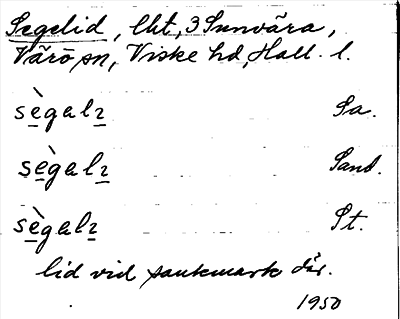 Segelid, lht, 3 Sunvära,
Värö sn, Viske hd, Hall. l.
sègalɿ Sa.
sègalɿ Sand.
sègalɿ St.
lid vid sankmark där.
1950